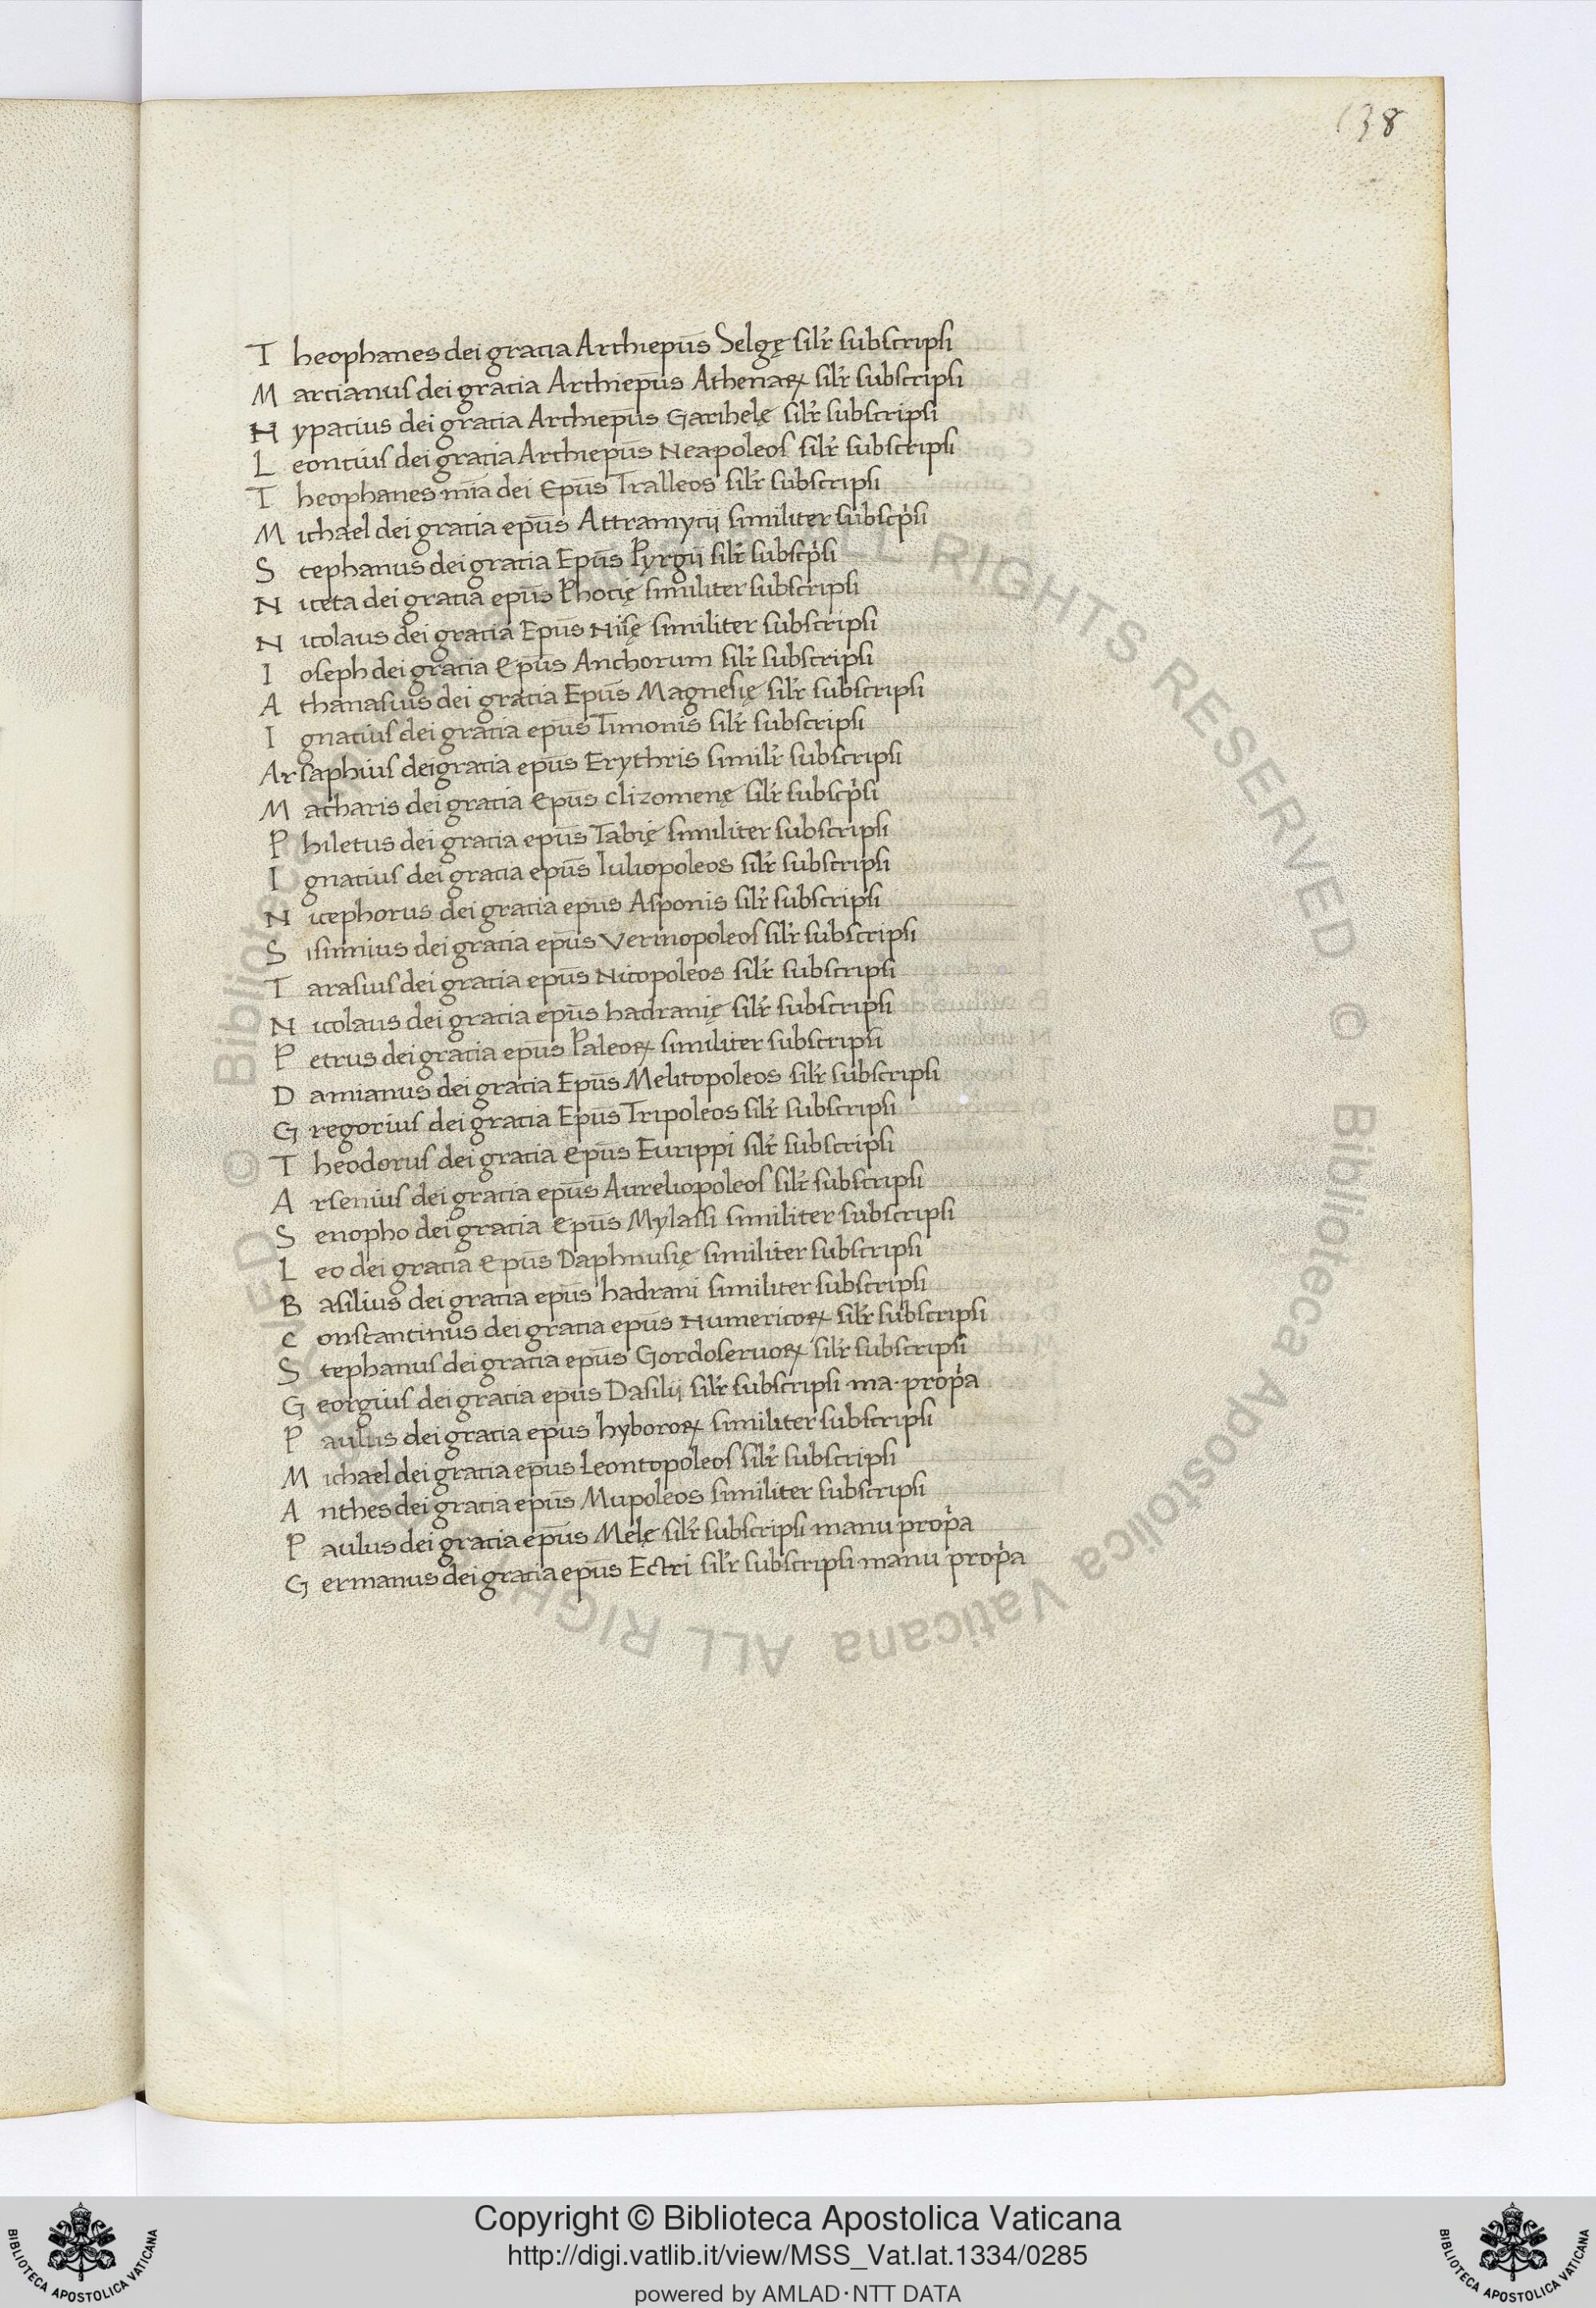 138
Theophanes dei gratia Archiep̄us Selgę silr̉ subscripsi
Martianus dei gratia Archiep̄us Athenaꝝ silr̉ subscripsi
Nypatius dei gratia Archiep̄us Garihelę silr̉ subscripsi
Leontius dei gratia Archiep̄us Neapoleos silr̉ subscripsi
Theophanes mīa dei Ep̄us Tralleos silr̉ subscripsi
Michael dei gratia ep̄us Attramytii similiter subscp̉si
Stephanus dei gratia Ep̄us Pyrgii silr̉ subscp̉si
Niceta dei gratia ep̄us Phocię similiter subscripsi
Nicolaus dei gratia Ep̄us Nisę similiter subscripsi
Ioseph dei gratia Ep̄us Anchorum silr̉ subscripsi
Athanasius dei gratia Ep̄us Magnesię silr̉ subscripsi
Ignatius dei gratia ep̄us Timonis silr̉ subscripsi
Arsaphius dei gratia ep̄us Erythris similr̉ subscripsi
Macharis dei gratia Ep̄us Clizomenę silr̉ subscp̉si
Philetus dei gratia ep̄us Tabię similiter subscripsi
Ignatius dei gratia ep̄us Iuliopoleos silr̉ subscripsi
Nicephorus dei gratia ep̄us Asponis silr̉ subscripsi
Sisinnius dei gratia ep̄us Verinopoleos silr̉ subscripsi
Tarasius dei gratia ep̄us Nicopoleos silr̉ subscripsi
Nicolaus dei gratia ep̄us hadranię silr̉ subscripsi
Petrus dei gratia ep̄us Paleoꝝ similiter subscripsi
Damianus dei gratia Ep̄us Melitopoleos silr̉ subscripsi
Gregorius dei gratia Ep̄us Tripoleos silr̉ subscripsi
Theodorus dei gratia Ep̄us Eurippi silr̉ subscripsi
Arsenius dei gratia ep̄us Aureliopoleos silr̉ subscripsi
Senopho dei gratia Ep̄us Mylassi similiter subscripsi
Leo dei gratia Ep̄us Daphnusię similiter subscripsi
Basilius dei gratia ep̄us hadrani similiter subscripsi
Constantinus dei gratia ep̄us Numericoꝝ silr̉ subscripsi
Stephanus dei gratia ep̄us Gordoseruoꝝ silr̉ subscripsi
Georgius dei gratia ep̄us Dasilii silr̉ subscripsi ma. prop̉a
Paulus dei gratia ep̄us hyboroꝝ similiter subscripsi
Michael dei gratia ep̄us Leontopoleos silr̉ subscripsi
Anthes dei gratia ep̄us Mupoleos similiter subscripsi
Paulus dei gratia ep̄us Melę silr̉ subscripsi manu prop̉a
Germanus dei gratia ep̄us Ectri silr̉ subscripsi manu prop̉a
Copyright © Biblioteca Apostolica Vaticana
http://digi.vatlib.it/view/MSS_Vat.lat.1334/0285
powered by AMLAD·NTT DATA